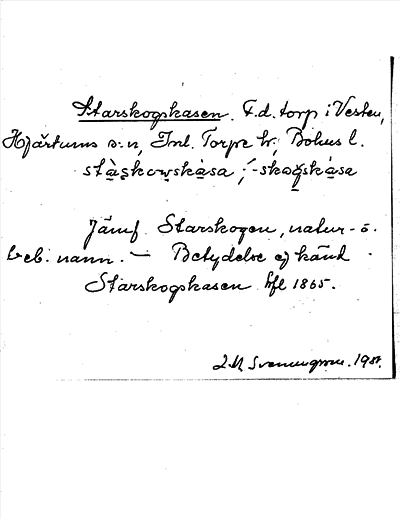 Starskogskasen. F.d. torp i Vesten,
Hjärtums s:n, Inl. Torpe hr, Bohus l.
stàʂkowskàsa ; -skoǥskàsa
Jämf. Starskogen, natur- o.
beb. namn. — Betydelse ej känd.
Starskogskasen hfl 1865.